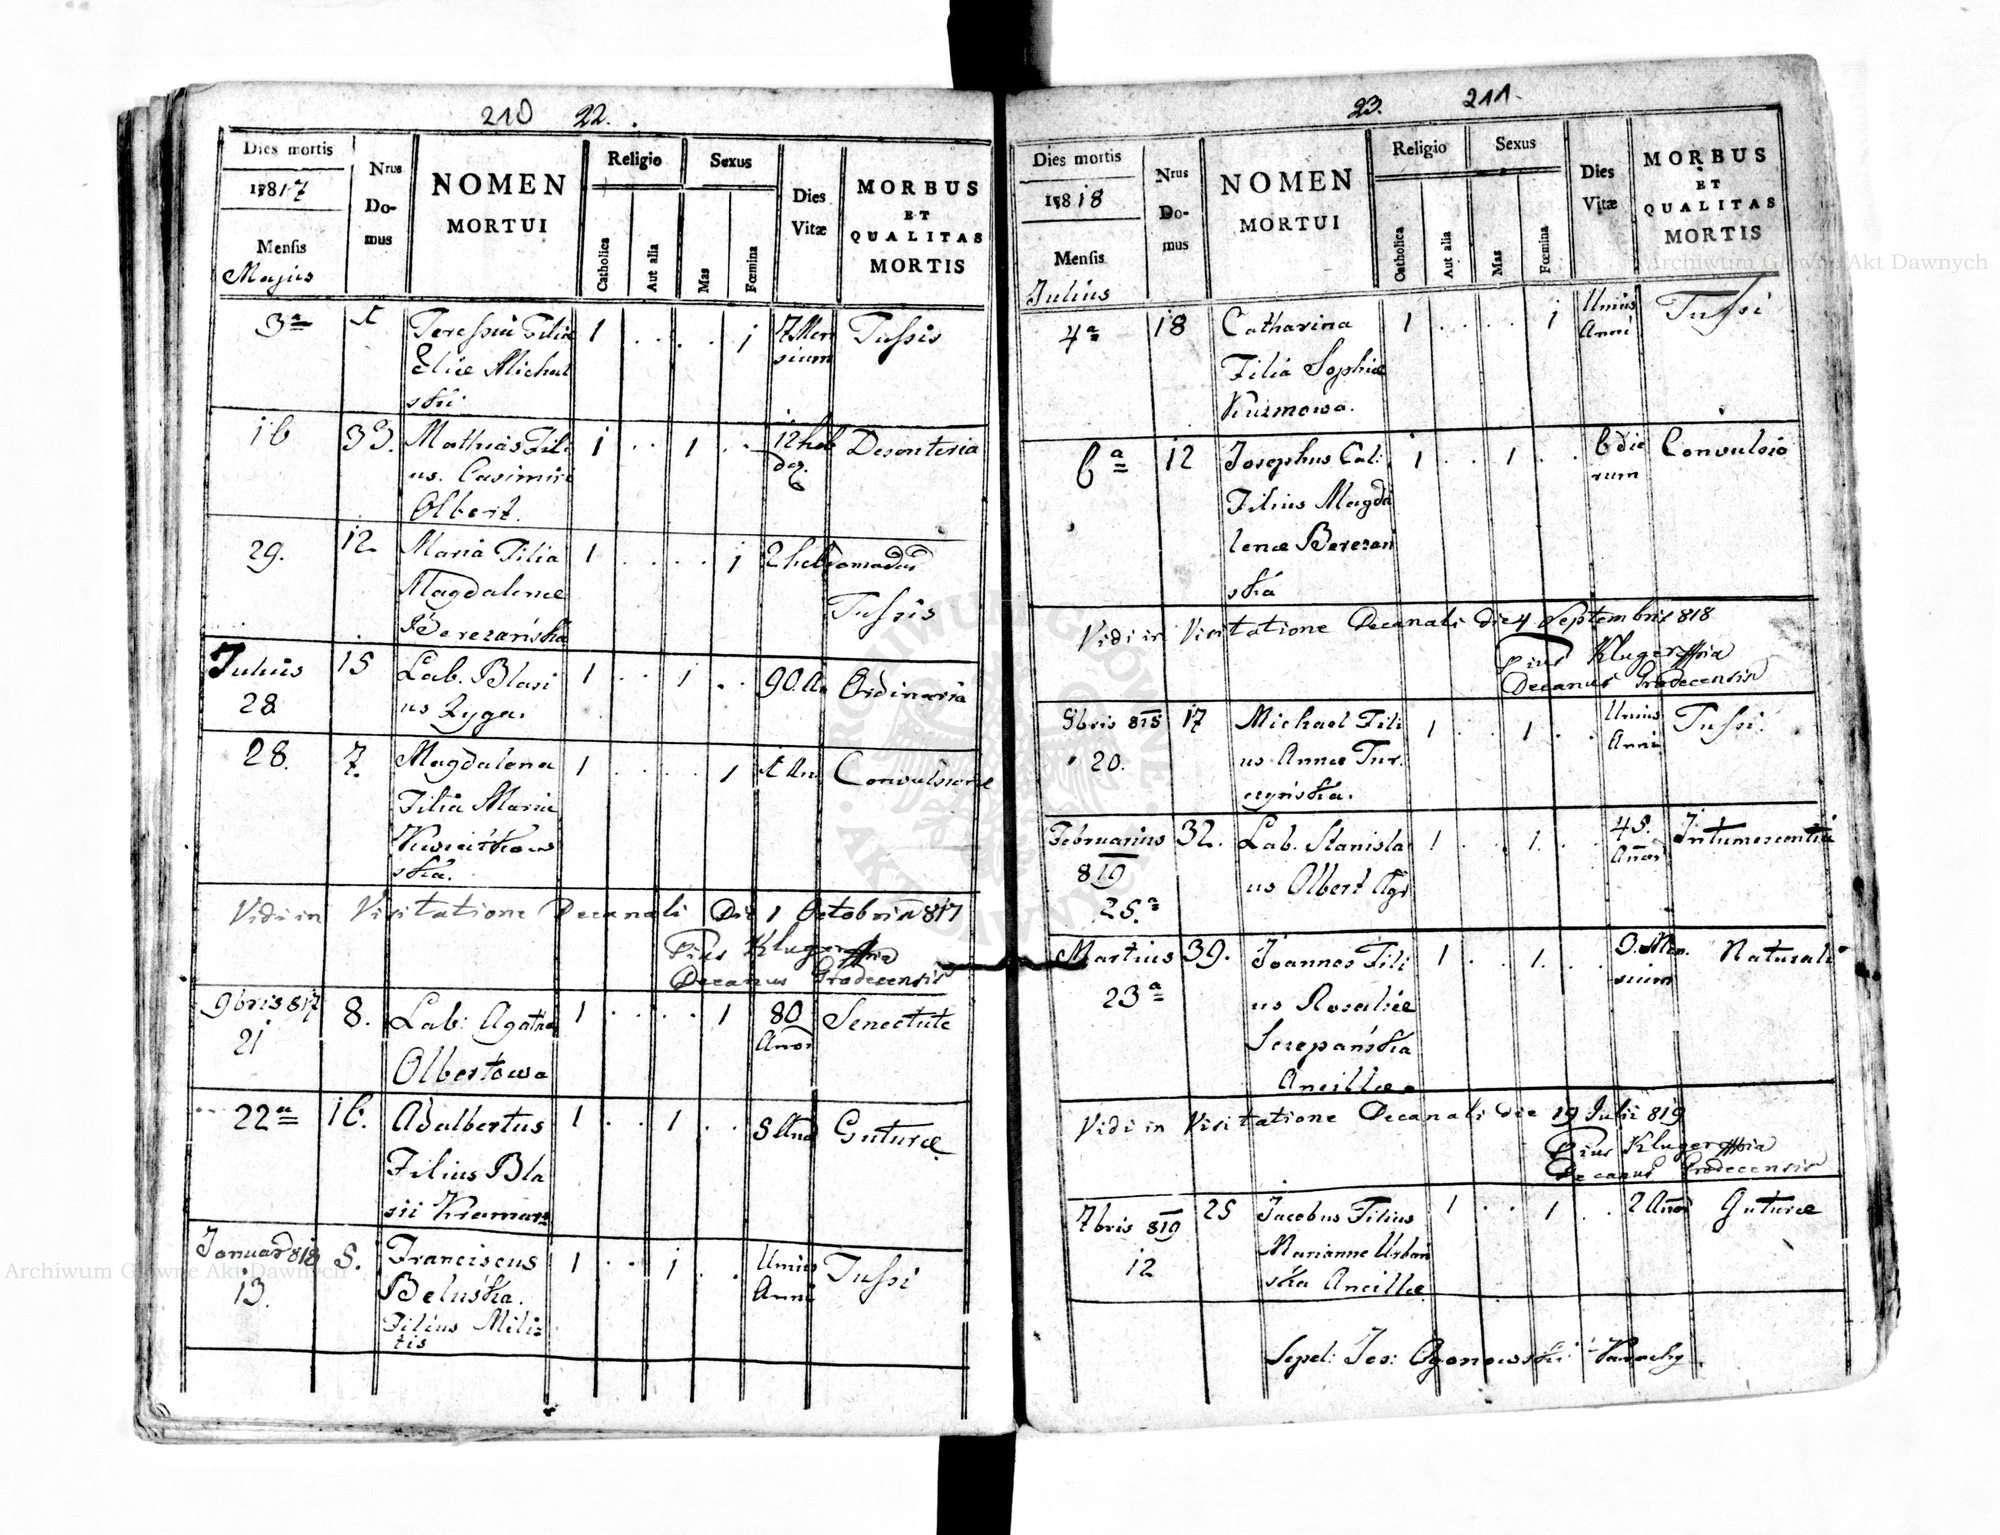 210 22.
Dies mortis
1817
Mensis
Majus
Nrus
Do-
mus
NOMEN
MORTUI
Religio
Catholica
Aut alia
Sexus
Mas
Fœmina
Dies
Vitæ
MORBUS
ET
QUALITAS
MORTIS
3a Filia 1 . . . . 1 7 Men Tussis
Michal sium
ski
16 33. Mathias Fili 1 . . 1 . . 12 heb Desenteria
us. Casimiri
Olbert.
29. 12. Maria Filia 1 . . . . 1 2 hebdomadas
Magdalenæ Tussis
Berezańska
Julius 15 Lab. Blasi 1 . . 1 . . 90 An Ordinaria
28 us Zyga.
28. 7. Magdalena 1 . . . . 1 An Convulsione
Filia Maria
ska.
Vidi in Visitatione Decanali Die 1 Octobris 817
Pius Kluger
Decanus Grodecensis
9bris 817 8. Lab: Agatha 1 . . . . 1 80 Senectute
21 Olbertowa
22a 16. Adalbertus 1 . . 1 . . 5 Gutture
Filius Bla
sii Kramarz
Januar 818 5. Franciscus 1 . . 1 . . Unius Tussi
13. Beluska. Anni
Filius Mili=
tis
23. 211.
Dies mortis
1818
Mensis
Julius
Nrus
Do-
mus
NOMEN
MORTUI
Religio
Catholica
Aut alia
Sexus
Mas
Fœmina
Dies
Vitæ
MORBUS
ET
QUALITAS
MORTIS
4a 18 Catharina 1 . . . . 1 Unius Tussi
Filia Sophiæ Anni
Kuzmowa.
6a 12 Josephus Cal: 1 . . 1 . . 6 die Convulsio
Filius Magda rum
lenæ Berezan
ska
Vidi in Visitatione Decanali die 4 Septembris 818
Pius Kluger
Decanus Grodecensis
8bris 818 17 Michael Fili 1 . . 1 . . Unius Tussi.
20. us Annæ Tur. Anni
czynska.
Februarius 32. Lab. Stanisla 1 . . 1 . . 45. Intumescentia
819 us Olbert Anor
25.a
Martius 39. Joannes Fili 1 . . 1 . . 9. Men. Naturali
23a us Rosaliæ sium
Szczepańska
Ancillæ.
Vidi in Visitatione Decanali die 19 Julii 819
Pius Kluger
Decanus Grodecensis
7bris 819 25 Jacobus Filius 1 . . 1 . . 2 Anor Gutture
12 Marianne Urban
ska Ancillæ
Sepel: Jos: Ogonowski
Archiwum Główne Akt Dawnych
Archiwum Główne Akt Dawnych
ARCHIWUM GŁÓWNE · AKT DAWNYCH ·